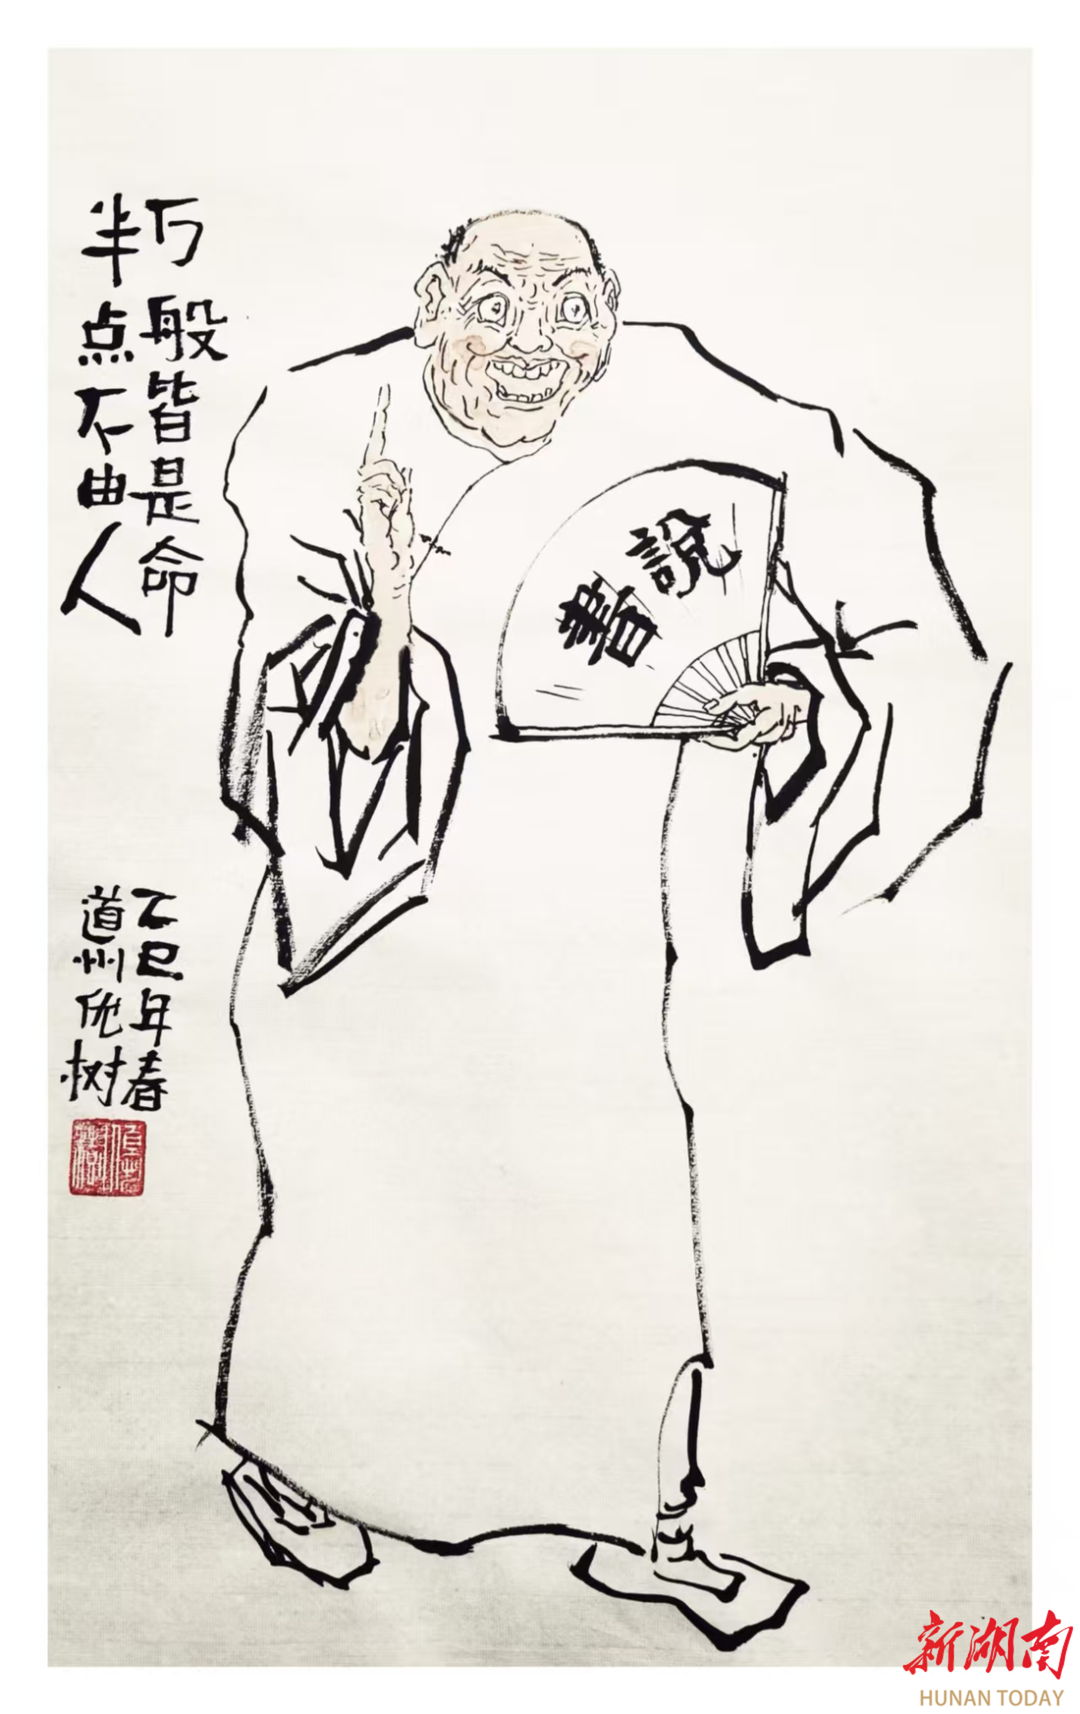 万般皆是命
半点不由人
説書
乙巳年春
道州优树
新湖南
HUNAN TODAY